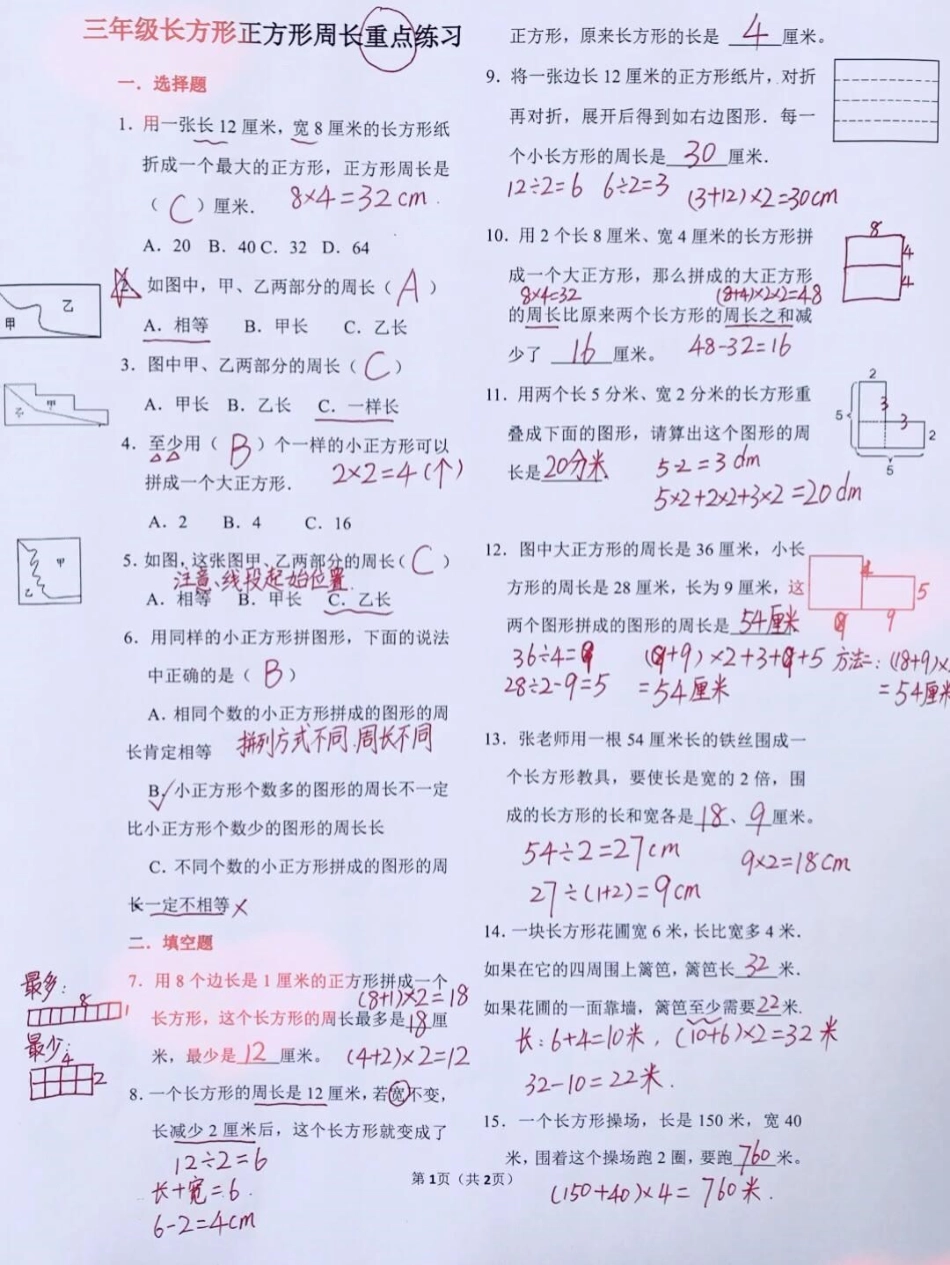 三年级长方形正方形周长重点练习
一．选择题
1．用一张长 12 厘米，宽 8 厘米的长方形纸
折成一个最大的正方形，正方形周长是
（ C ）厘米． 8×4=32cm
A．20 B．40 C．32 D．64
2、如图中，甲、乙两部分的周长（ A ）
甲 乙
A．相等 B．甲长 C．乙长
3．图中甲、乙两部分的周长（ C ）
乙 甲
A．甲长 B．乙长 C．一样长
4．至少用（ B ）个一样的小正方形可以
拼成一个大正方形． 2×2=4(个)
A．2 B．4 C．16
5．如图，这张图甲、乙两部分的周长（ C ）
乙 甲
注意、线段起始位置
A．相等 B．甲长 C．乙长
6．用同样的小正方形拼图形，下面的说法
中正确的是（ B ）
A．相同个数的小正方形拼成的图形的周
长肯定相等 拼列方式不同.周长不同
B．✓小正方形个数多的图形的周长不一定
比小正方形个数少的图形的周长长
C．不同个数的小正方形拼成的图形的周
长一定不相等×
二．填空题
7．用 8 个边长是 1 厘米的正方形拼成一个
(8+1)×2=18
长方形，这个长方形的周长最多是 18 厘
米，最少是 12 厘米。 (4+2)×2=12
最多：
8 1
最少：
4 2
8．一个长方形的周长是 12 厘米，若宽不变，
长减少 2 厘米后，这个长方形就变成了
12÷2=6
长+宽=6.
6-2=4cm
正方形，原来长方形的长是 4 厘米。
9．将一张边长 12 厘米的正方形纸片，对折
再对折，展开后得到如右边图形．每一
个小长方形的周长是 30 厘米．
12÷2=6 6÷2=3 (3+12)×2=30cm
10．用 2 个长 8 厘米、宽 4 厘米的长方形拼
8
4
4
成一个大正方形，那么拼成的大正方形
8×4=32 (8+4)×2×2=48
的周长比原来两个长方形的周长之和减
少了 16 厘米。 48-32=16
11．用两个长 5 分米、宽 2 分米的长方形重
叠成下面的图形，请算出这个图形的周
长是 20分米．
2
5 3 3 2
5
5-2=3dm
5×2+2×2+3×2=20dm
12．图中大正方形的周长是 36 厘米，小长
方形的周长是 28 厘米，长为 9 厘米，这
两个图形拼成的图形的周长是 54厘米
4 5
9 9
36÷4=9 (9+9)×2+3+9+5 方法二：(18+9)×
28÷2-9=5 =54厘米 =54厘米
13．张老师用一根 54 厘米长的铁丝围成一
个长方形教具，要使长是宽的 2 倍，围
成的长方形的长和宽各是 18 、 9 厘米。
54÷2=27cm 9×2=18cm
27÷(1+2)=9cm
14．一块长方形花圃宽 6 米，长比宽多 4 米．
如果在它的四周围上篱笆，篱笆长 32 米．
如果花圃的一面靠墙，篱笆至少需要 22 米．
长：6+4=10米，(10+6)×2=32米
32-10=22米.
15．一个长方形操场，长是 150 米，宽 40
米，围着这个操场跑 2 圈，要跑 760 米。
(150+40)×4=760米.
第 1页（共 2页）